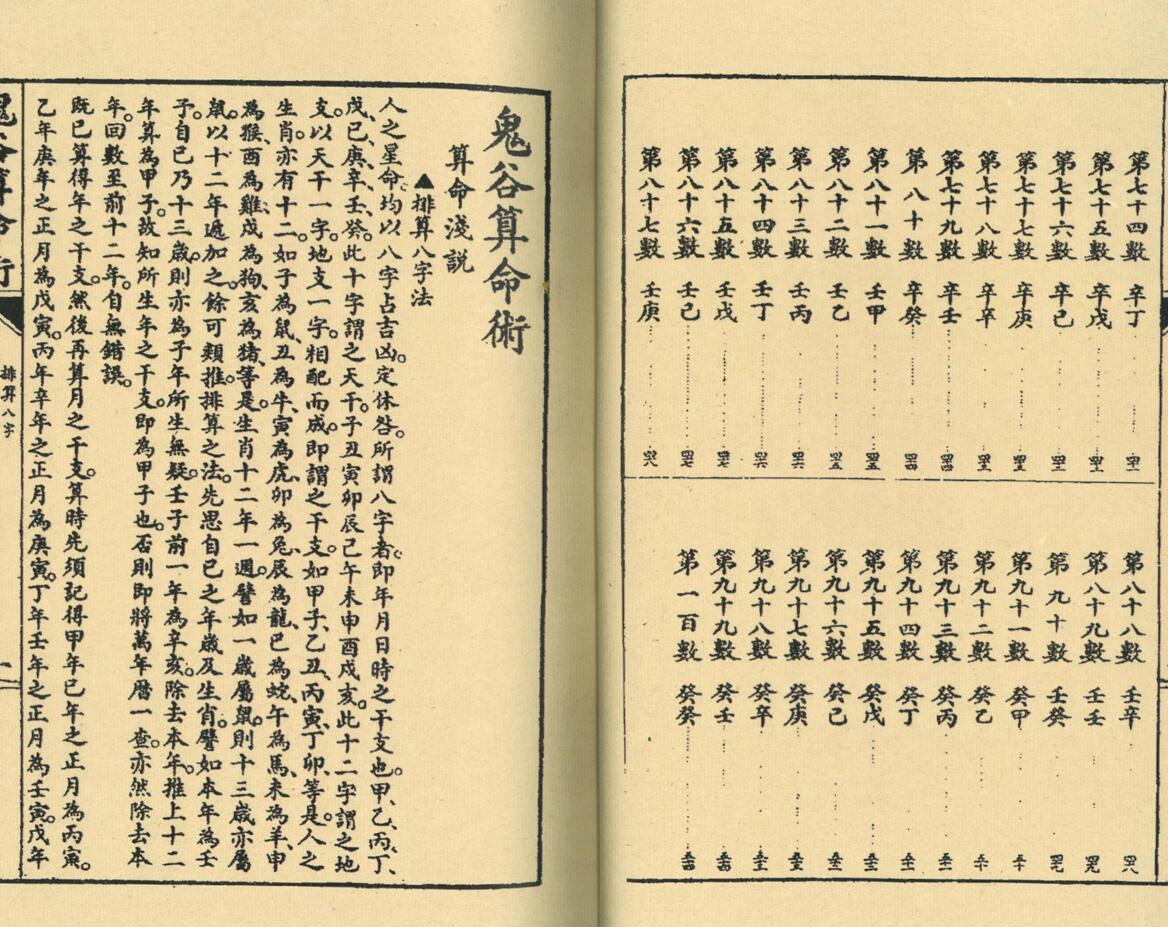 第七十四數 辛丁 四一
第七十五數 辛戊 四二
第七十六數 辛己 四二
第七十七數 辛庚 四三
第七十八數 辛辛 四三
第七十九數 辛壬 四四
第八十數 辛癸 四四
第八十一數 壬甲 四五
第八十二數 壬乙 四五
第八十三數 壬丙 四六
第八十四數 壬丁 四六
第八十五數 壬戊 四七
第八十六數 壬己 四七
第八十七數 壬庚 四八
第八十八數 壬辛 四八
第八十九數 壬壬 四九
第九十數 壬癸 四九
第九十一數 癸甲 五十
第九十二數 癸乙 五十
第九十三數 癸丙 五一
第九十四數 癸丁 五一
第九十五數 癸戊 五二
第九十六數 癸己 五二
第九十七數 癸庚 五三
第九十八數 癸辛 五三
第九十九數 癸壬 五四
第一百數 癸癸 五四
鬼谷算命術
算命淺說
▲排算八字法
人之星命、均以八字占吉凶。定休咎。所謂八字者、即年月日時之干支也。甲、乙、丙、丁、
戊、己、庚、辛、壬、癸。此十字謂之天干。子丑寅卯辰巳午未申酉戌亥。此十二字謂之地
支。以天干一字。地支一字。相配而成。即謂之干支。如甲子、乙丑、丙寅、丁卯、等是。人之
生肖。亦有十二。如子為鼠、丑為牛、寅為虎、卯為兔、辰為龍、巳為蛇、午為馬、未為羊、申
為猴、酉為雞、戌為狗、亥為猪、等是。生肖十二年一週。譬如一歲屬鼠。則十三歲亦屬
鼠。以十二年遞加之。餘可類推。排算之法。先思自己之年歲及生肖。譬如本年為壬
子。自己乃十三歲。則亦為子年所生無疑。壬子前一年為辛亥。除去本年。推上十二
年算為甲子。故知所生年之干支。即為甲子也。否則即將萬年曆一查。亦然除去本
年。回數至前十二年。自無錯誤。
既已算得年之干支。然後再算月之干支。算時先須記得甲年己年之正月為丙寅。
乙年庚年之正月為戊寅。丙年辛年之正月為庚寅。丁年壬年之正月為壬寅。戊年
鬼谷算命術 排算八字 一